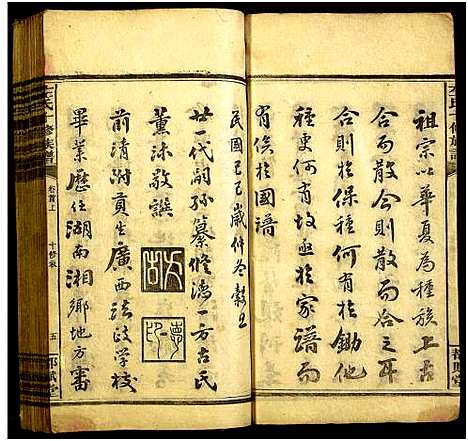 祖宗以華夏為種族上古
合而散今則散而合之耳
合則於保種何有於鋤他
種更何有故亟於家譜而
肖俟於國譜
民國己巳歲仲冬穀旦
廿一代嗣孫纂修憑一方古氏
薰沐敬譔
前清附貢生廣西法政學校
畢業歷任湖南湘鄉地方審
修族譜
卷首上
五